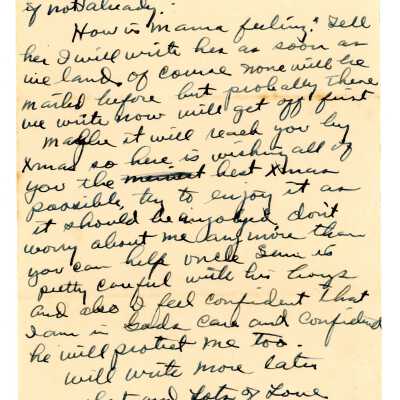 if not already.
How is Mama feeling? Tell
her I will write her as soon as
we land, of course none will be
mailed before but probably these
we write now will get off first
Maybe it will reach you by
Xmas so here is wishing all of
you the best Xmas
possible, try to enjoy it as
it should be enjoyed, don't
worry about me any more than
you can help uncle Sam is
pretty careful with his boys
and also I feel confident that
I am in Gods care and confident
he will protect me too.
will write more later
and Lots of Love